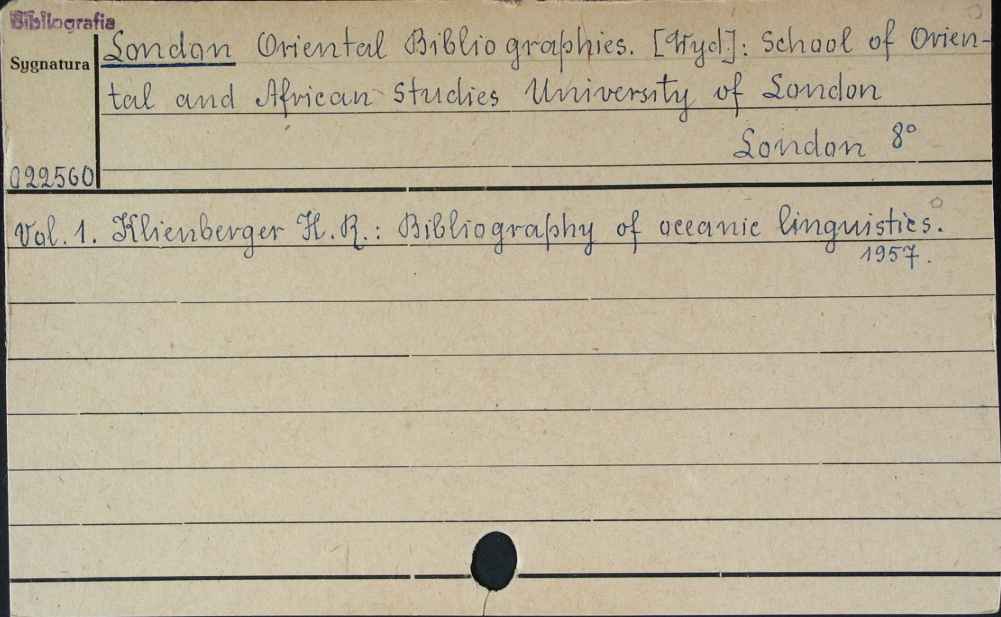 Bibliografia
Sygnatura
London Oriental Bibliographies. [Wyd]: School of Orien-
tal and African Studies University of London
London 8°
022560
Vol. 1. Klienberger H. R.: Bibliography of oceanic linguistics.
1957.